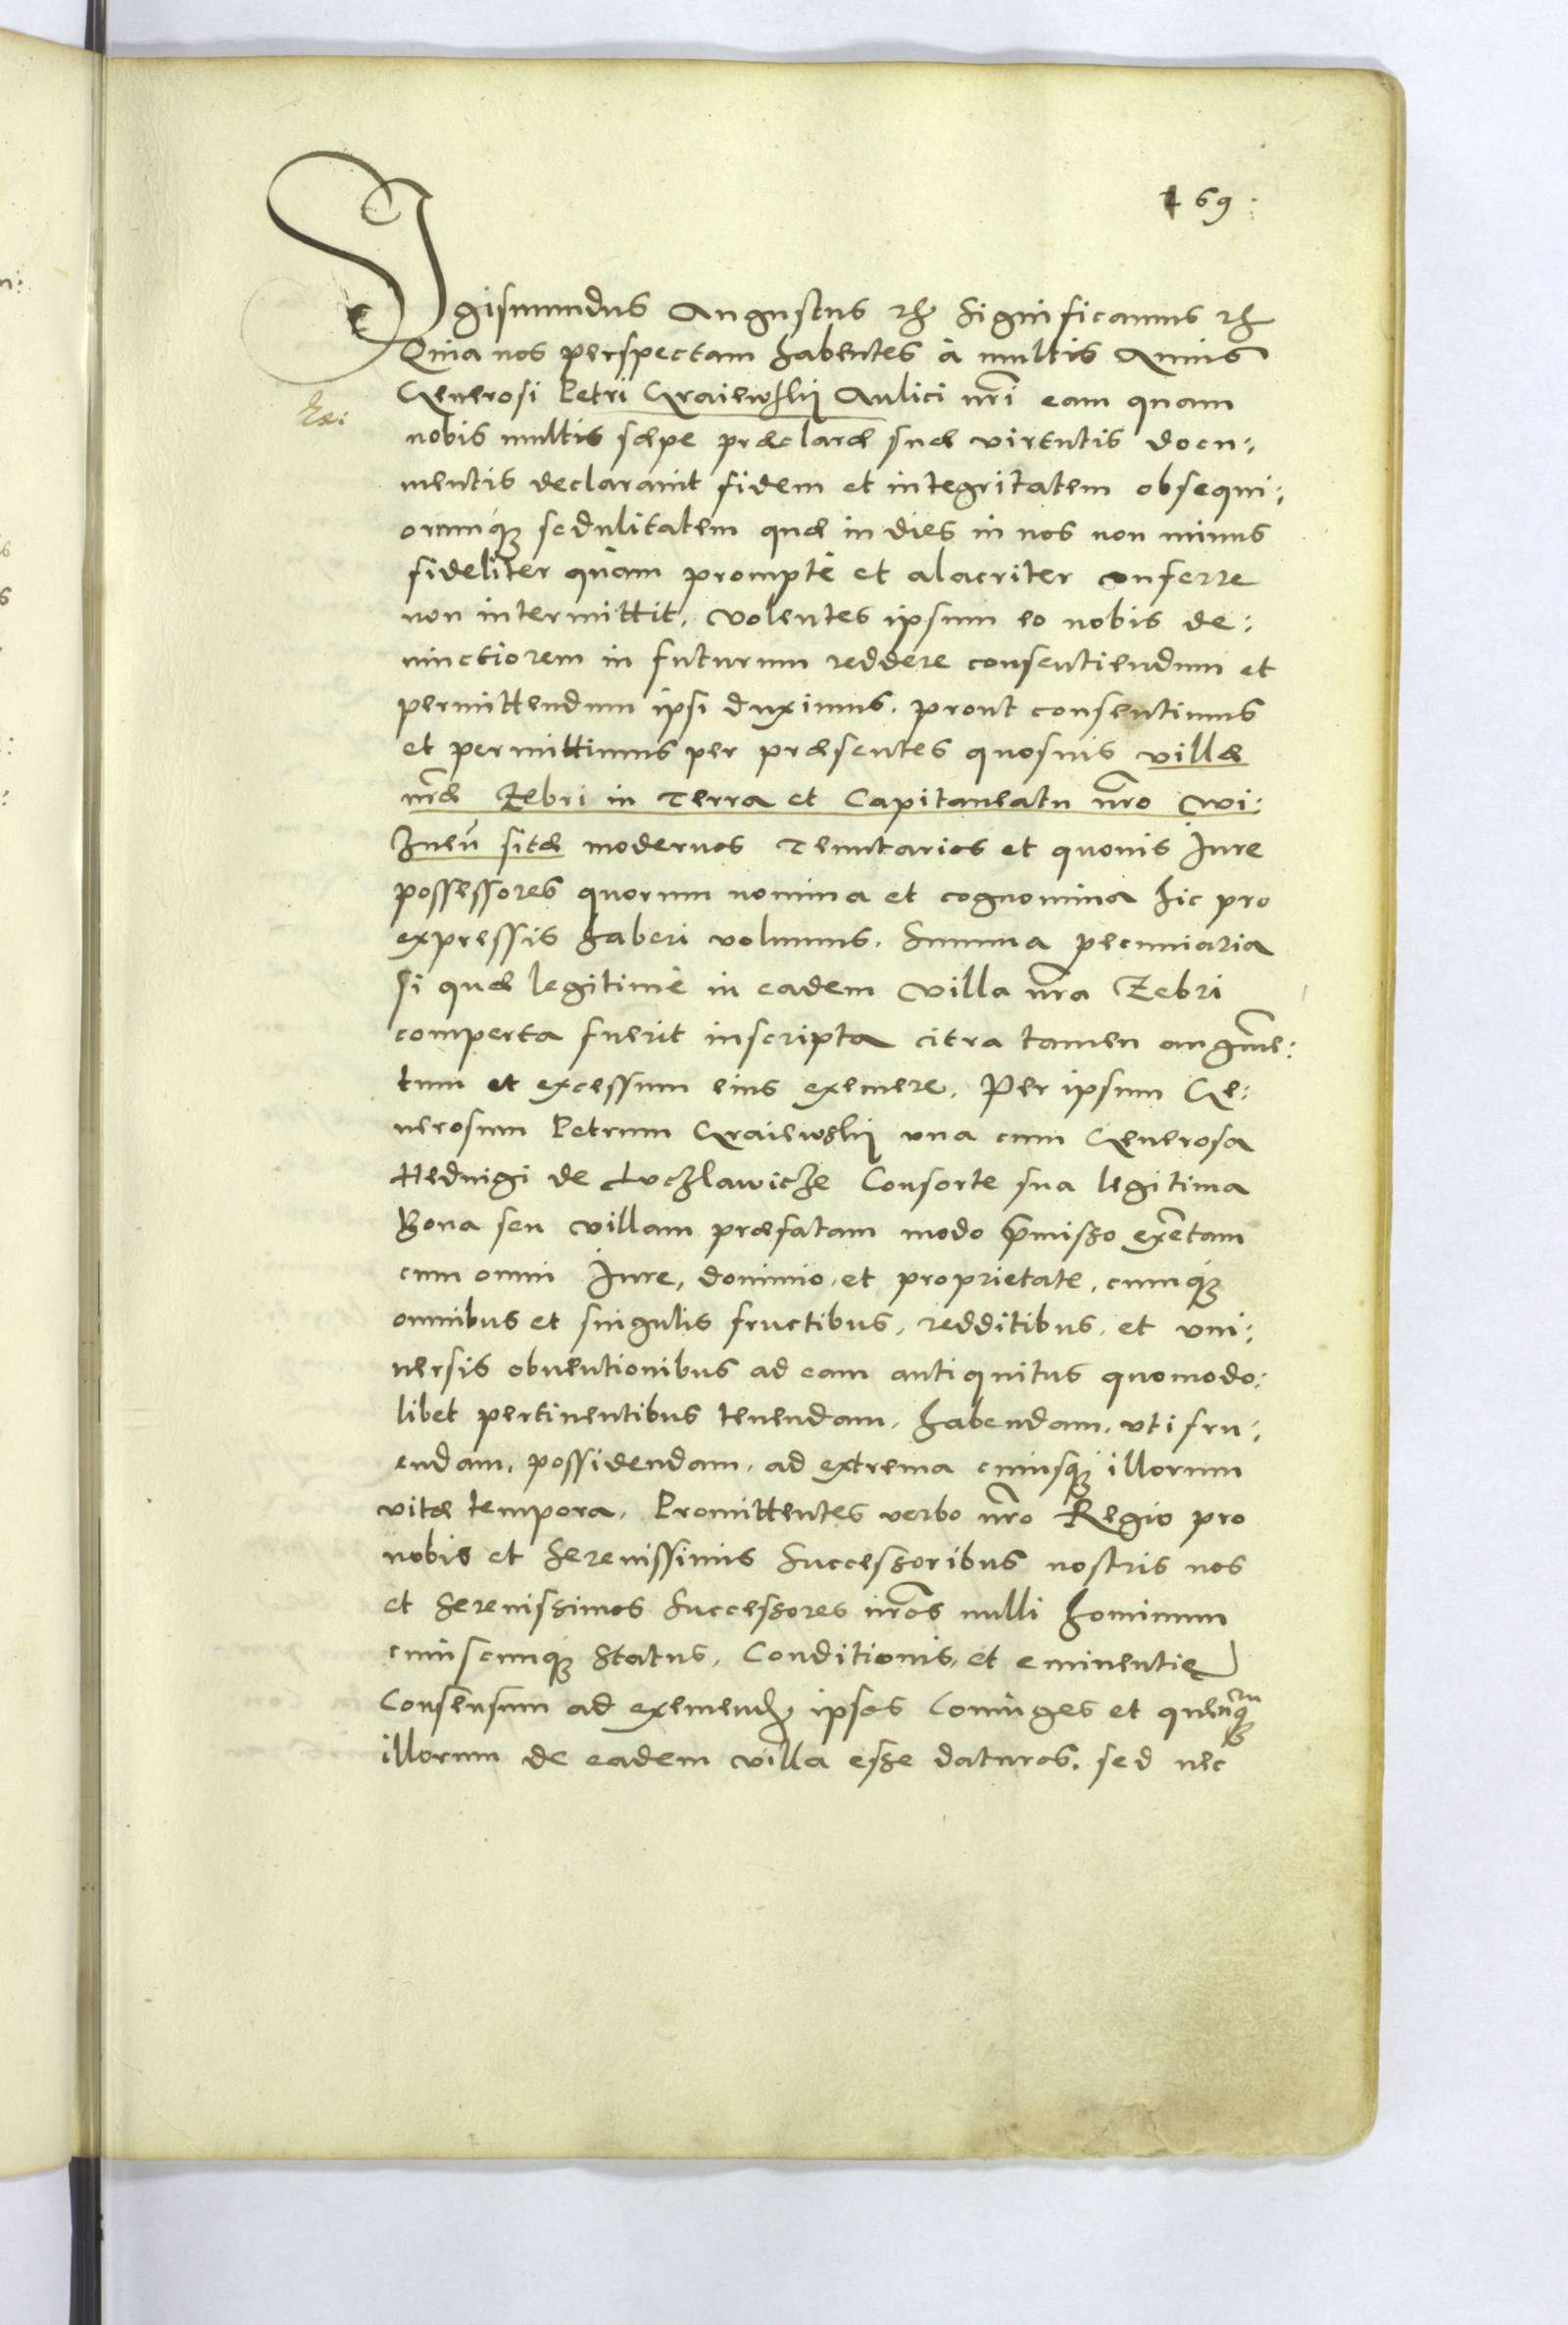 169.
Sigismundus Augustus etc Significamus etc
Quia nos perspectam habentes à multis Annis
Generosi Petri Graiewskij Aulici nri eam quam
nobis multis sæpe præclaræ suæ virtutis docu:
mentis declarauit fidem et integritatem obsequi:
orumq̀ꝫ sedulitatem quæ in dies in nos non minus
fideliter quàm promptè et alacriter conferre
non intermittit, volentes ipsum eo nobis de:
uinctiorem in futurum reddere consentiendum et
permittendum ipsi duximus, prout consentimus
et permittimus per præsentes quosuis villæ
nræ Zebri in Terra et Capitaneatu nro Wi:
znen̄ sitæ modernos Tenutarios et quouis Iure
possessores quorum nomina et cognomina hic pro
expressis haberi volumus, Summa pecuniaria
si quæ legitimè in eadem villa nra Zebri
comperta fuerit inscripta citra tamen augme:
tum et excessum eius exemere. Per ipsum Ge:
nerosum Petrum Graiewskij vna cum Generosa
Heduigi de Luczlawicze Consorte sua legitima
Bona seu villam præfatam modo pmisso exētam
cum omni Iure, dominio, et proprietate, cumq̀ꝫ
omnibus et singulis fructibus, redditibus, et vni:
uersis obuentionibus ad eam antiquitus quomodo:
libet pertinentibus tenendam, habendam, vti fru:
endam, possidendam, ad extrema cuiusqꝫ illorum
vitæ tempora. Promittentes verbo nro Regio pro
nobis et Serenissimis Successoribus nostris nos
et Serenissimos Successores nros nulli hominum
cuiuscunqꝫ Status, Conditionis, et eminentię
Consensum ad exemend ipsos Coniuges et quēncunqꝫ
illorum de eadem villa esse daturos, sed nec